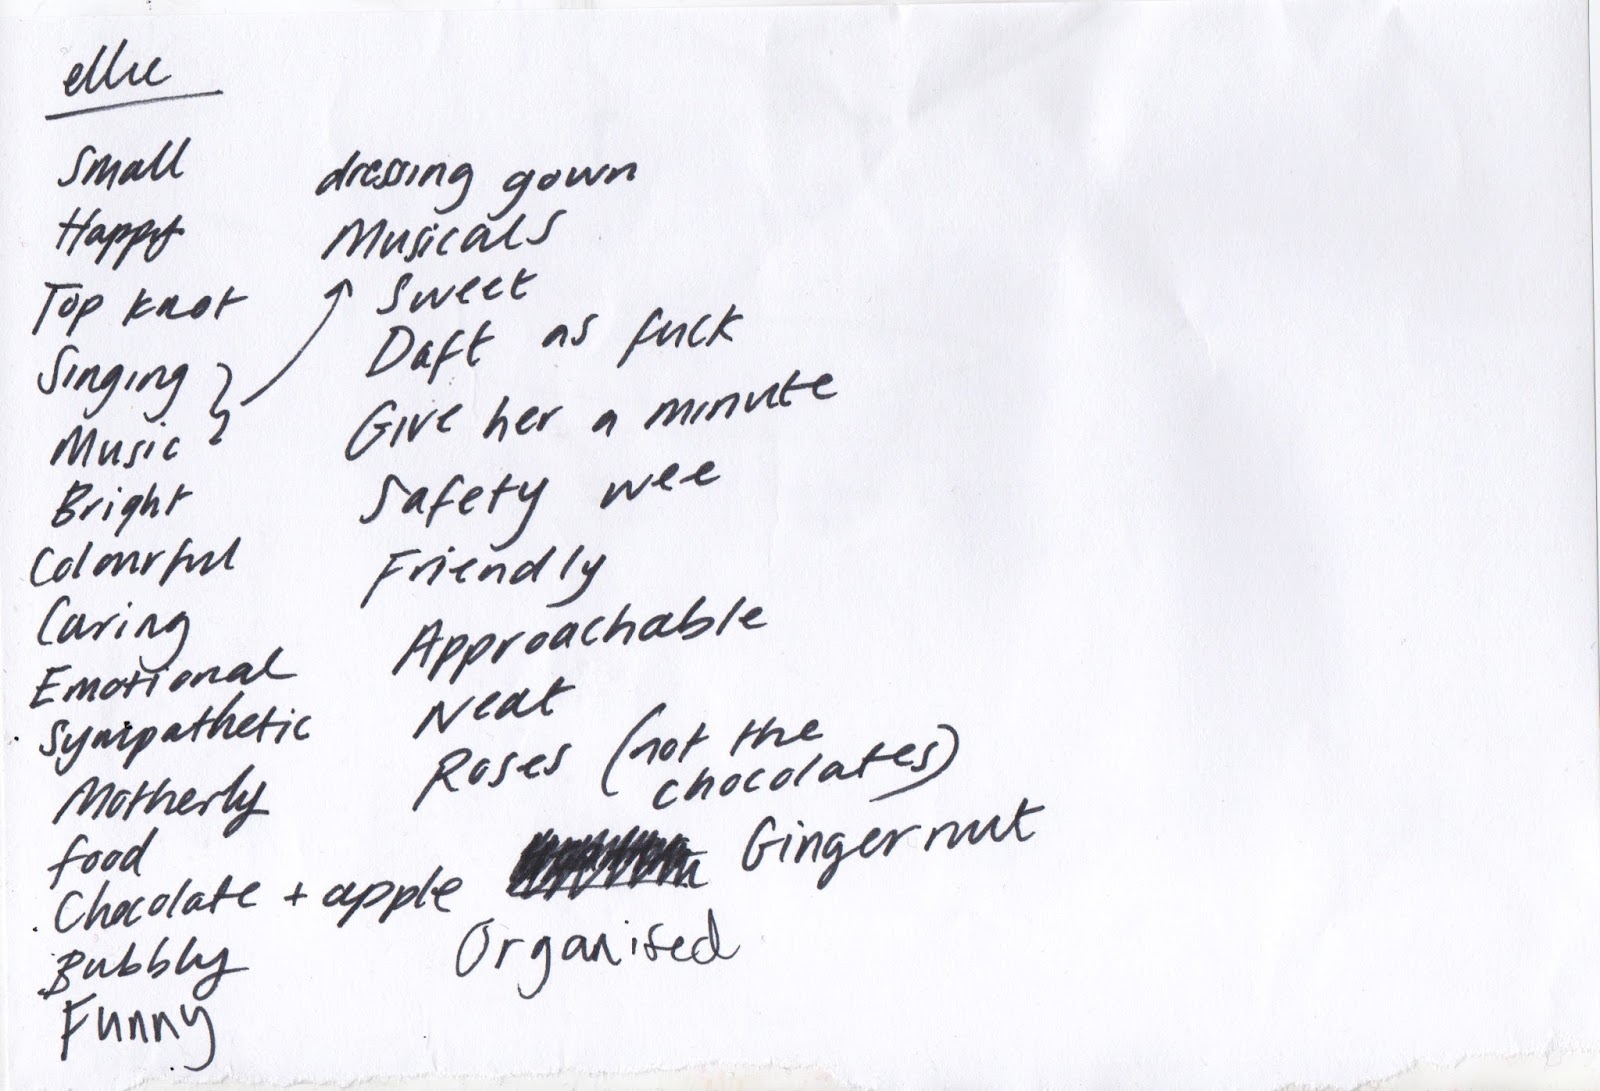 ellie
Small
Happy
Top knot
Singing
Music
Bright
Colourful
Caring
Emotional
Sympathetic
Motherly
food
Chocolate + apple
Bubbly
Funny
dressing gown
Musicals
Sweet
Daft as fuck
Give her a minute
Safety wee
Friendly
Approachable
Neat
Roses (not the
chocolates)
Gingernut
Organised